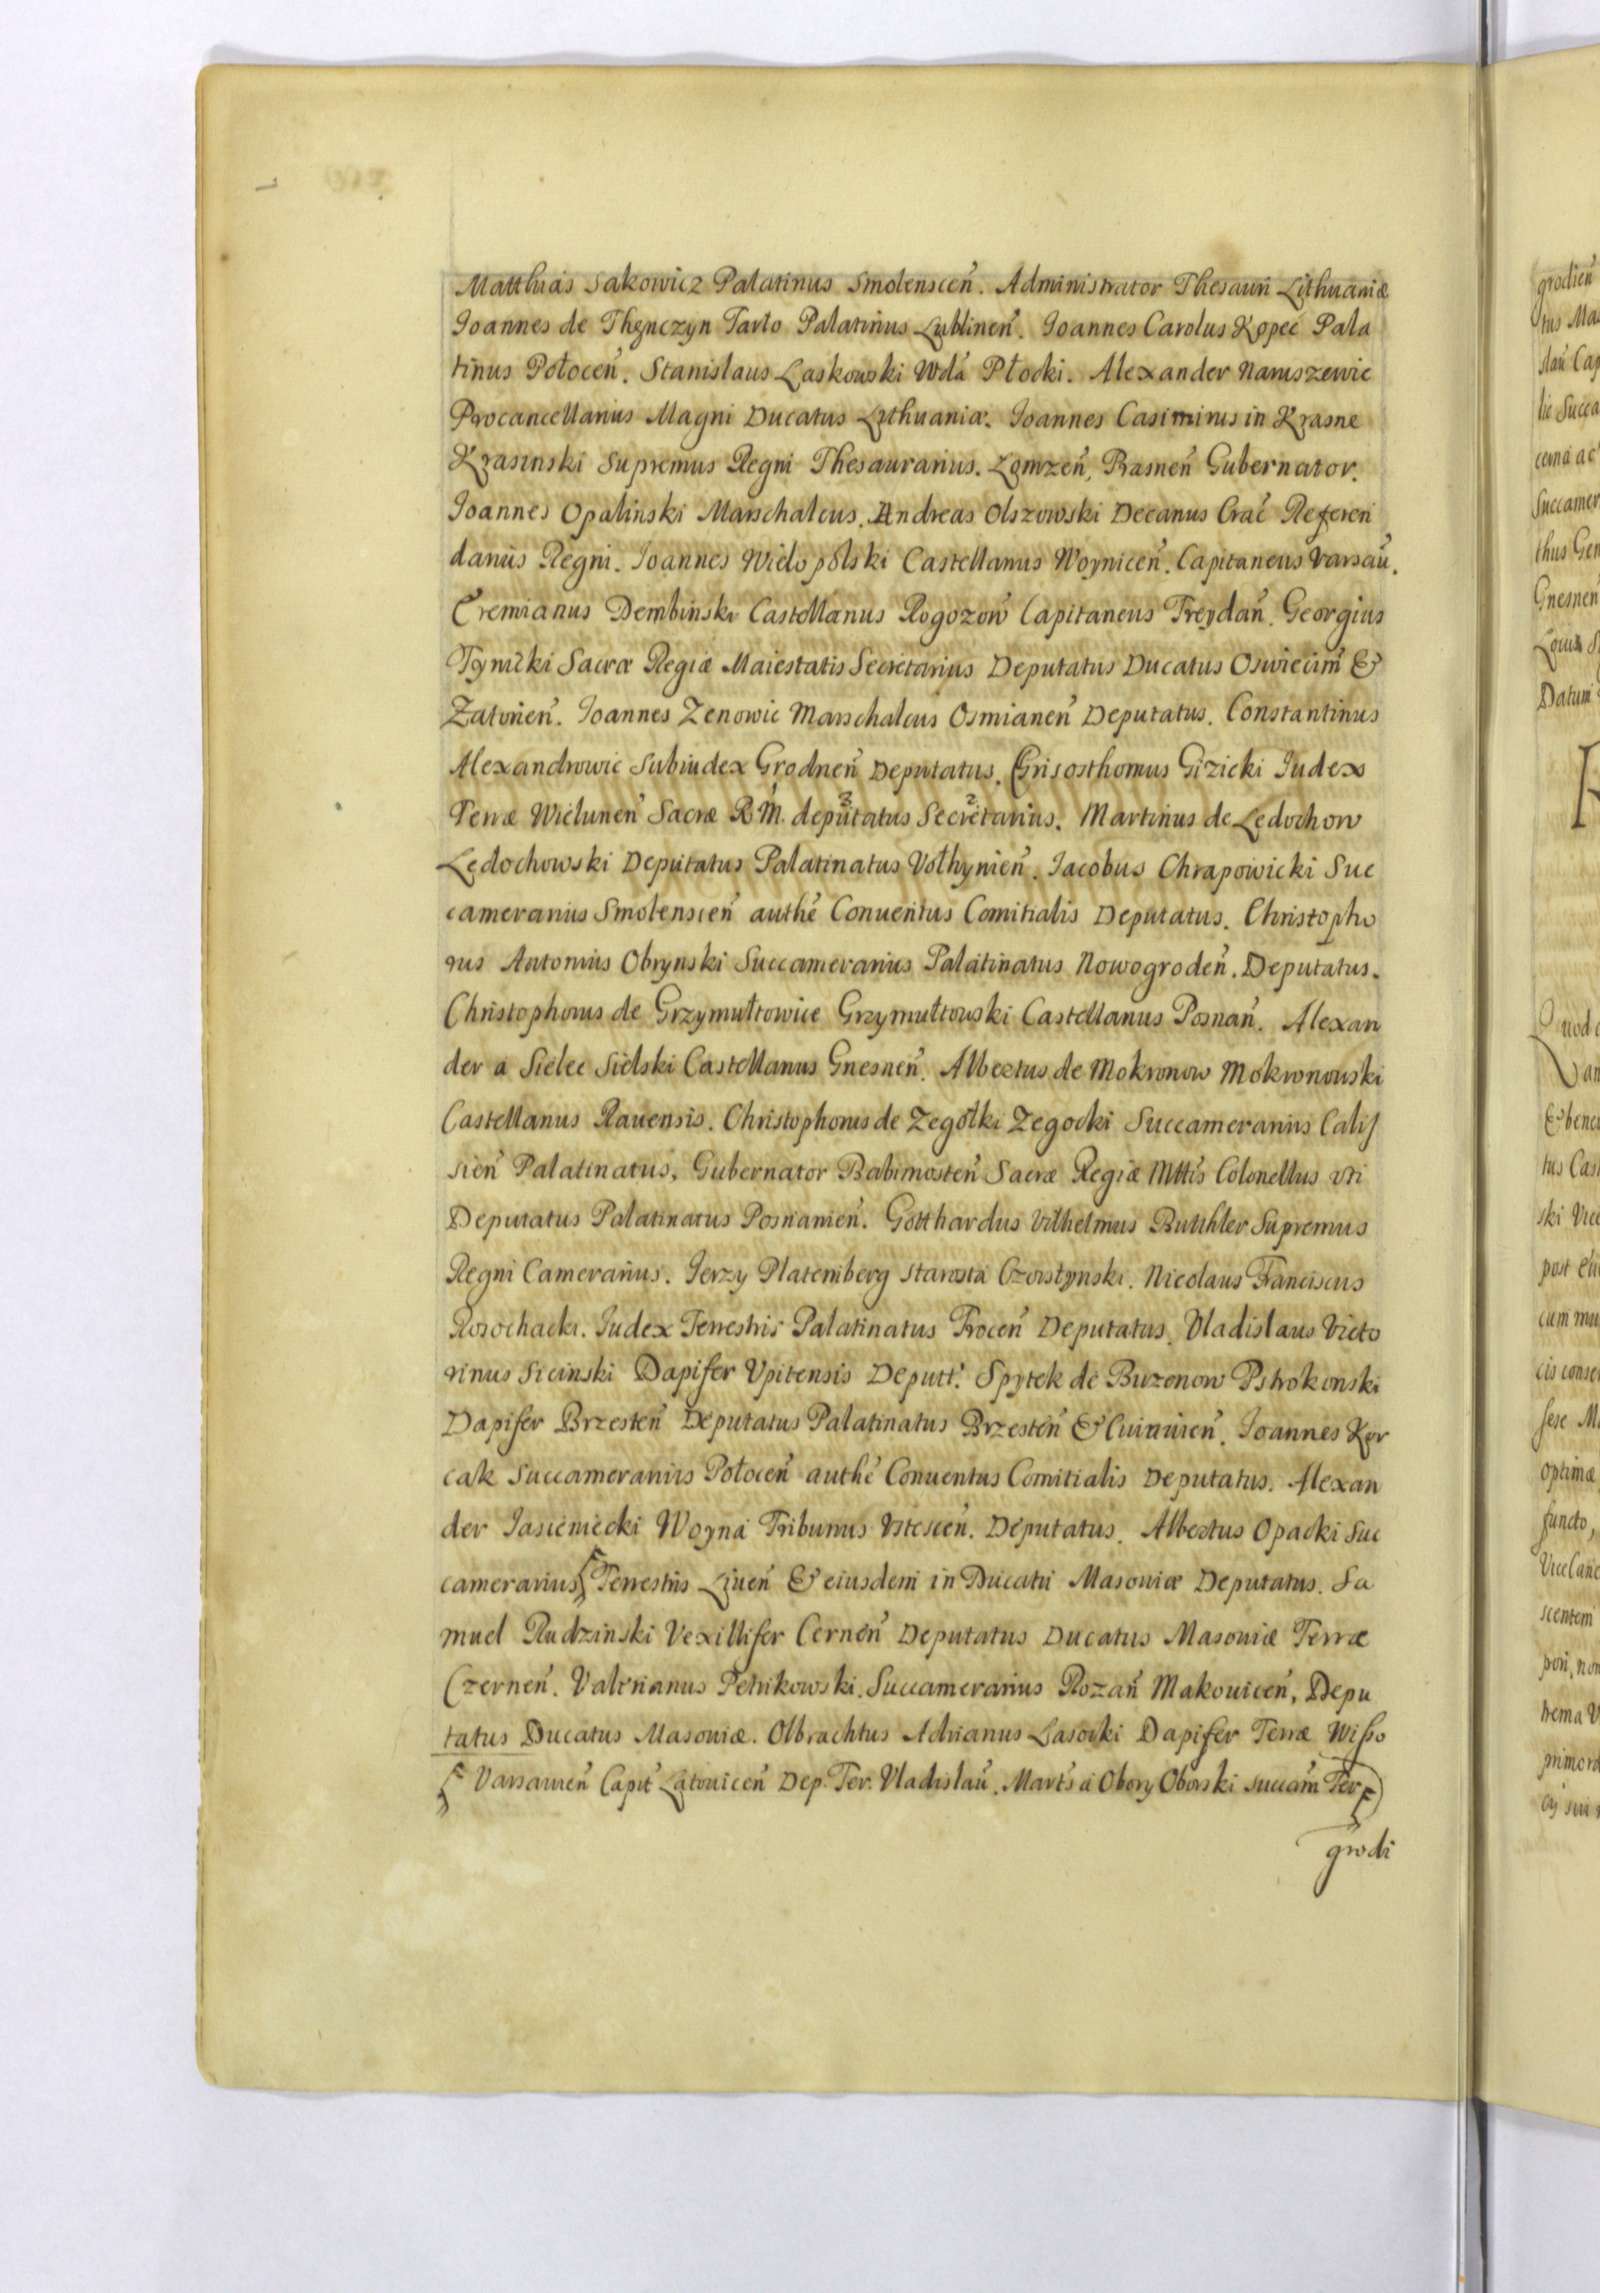 Matthias Sakowicz Palatinus Smolenscen̄. Administrator Thesauri Lithuaniæ
Ioannes de Thęnczyn Tarło Palatinus Lublinen̄. Ioannes Carolus Kopec Pala
tinus Połocen̄. Stanislaus Laskowski Wda Płocki. Alexander Naruszewic
Procancellarius Magni Ducatus Lithuaniæ. Ioannes Casimirus in Krasne
Krasinski Supremus Regni Thesaurarius. Łomzen̄, Prasnen̄ Gubernator.
Ioannes Opalinski Marschalcus. Andreas Olszowski Decanus Crac̄ Referen
darius Regni. Ioannes Wielopolski Castellanus Woynicen̄. Capitaneus Varsau̅.
Eremianus Dembinski Castellanus Rogozow̄ Capitaneus Treydan̄. Georgius
Tynicki Sacræ Regiæ Maiestatis Secretarius Deputatus Ducatus Oswiecim̄ &
Zatorien̄. Ioannes Zenowic Marschalcus Osmianen̄ Deputatus. Constantinus
Alexandrowic Subiudex Grodnen̄ Deputatus. Chrisosthomus Gizicki Iudex
Terræ Wielunen̄ Sacræ R M. deputatus Secretarius. Martinus de Ledochow
Lędochowski Deputatus Palatinatus Vołhynien̄. Iacobus Chrapowicki Suc
camerarius Smolenscen̄ authē Conuentus Comitialis Deputatus. Christopho
rus Antonius Obrynski Succamerarius Palatinatus Nowogroden̄. Deputatus.
Christophorus de Grzymułtowice Grzymułtowski Castellanus Posnan̄. Alexan
der a Sielec Sielski Castellanus Gnesnen̄. Albertus de Mokronow Mokronowski
Castellanus Rauensis. Christophorus de Zegołki Zegocki Succamerarius Calis
sien̄ Palatinatus, Gubernator Babimosten̄ Sacræ Regiæ Mttis Colonellus vti
Deputatus Palatinatus Posnanien̄. Gotthardus Vilhelmus Butthler Supremus
Regni Camerarius. Ierzy Platemberg Starosta Czorstynski. Nicolaus Franciscus
Rosochacki. Iudex Terrestris Palatinatus Trocen̄ Deputatus. Vladislaus Victo
rinus Sicinski Dapifer Vpitensis Deputt. Spytek de Buzenow Pstrokonski
Dapifer Brzesten̄ Deputatus Palatinatus Brzesten̄ & Cuiauien̄. Ioannes Kor
cak Succamerarius Połocen̄ authē Conuentus Comitialis Deputatus. Alexan
der Iasieniecki Woyna Tribunus Vitescen̄. Deputatus. Albertus Opacki Suc
camerarius Terrestris Liuen̄ & eiusdem in Ducatu Masouiæ Deputatus. Sa
muel Rudzinski Vexillifer Cernen̄ Deputatus Ducatus Masouiæ Terræ
Czernen̄. Valerianus Petrikowski. Succamerarius Rozan̄ Makouicen̄, Depu
tatus Ducatus Masouiæ. Olbrachtus Adrianus Lasocki Dapifer Terræ Wisso
Varsauien̄ Capit̄ Latouicen̄ Dep. Ter. Vladislau̅. Mart̄s a Obory Oborski Succam̄ Ter
grodi